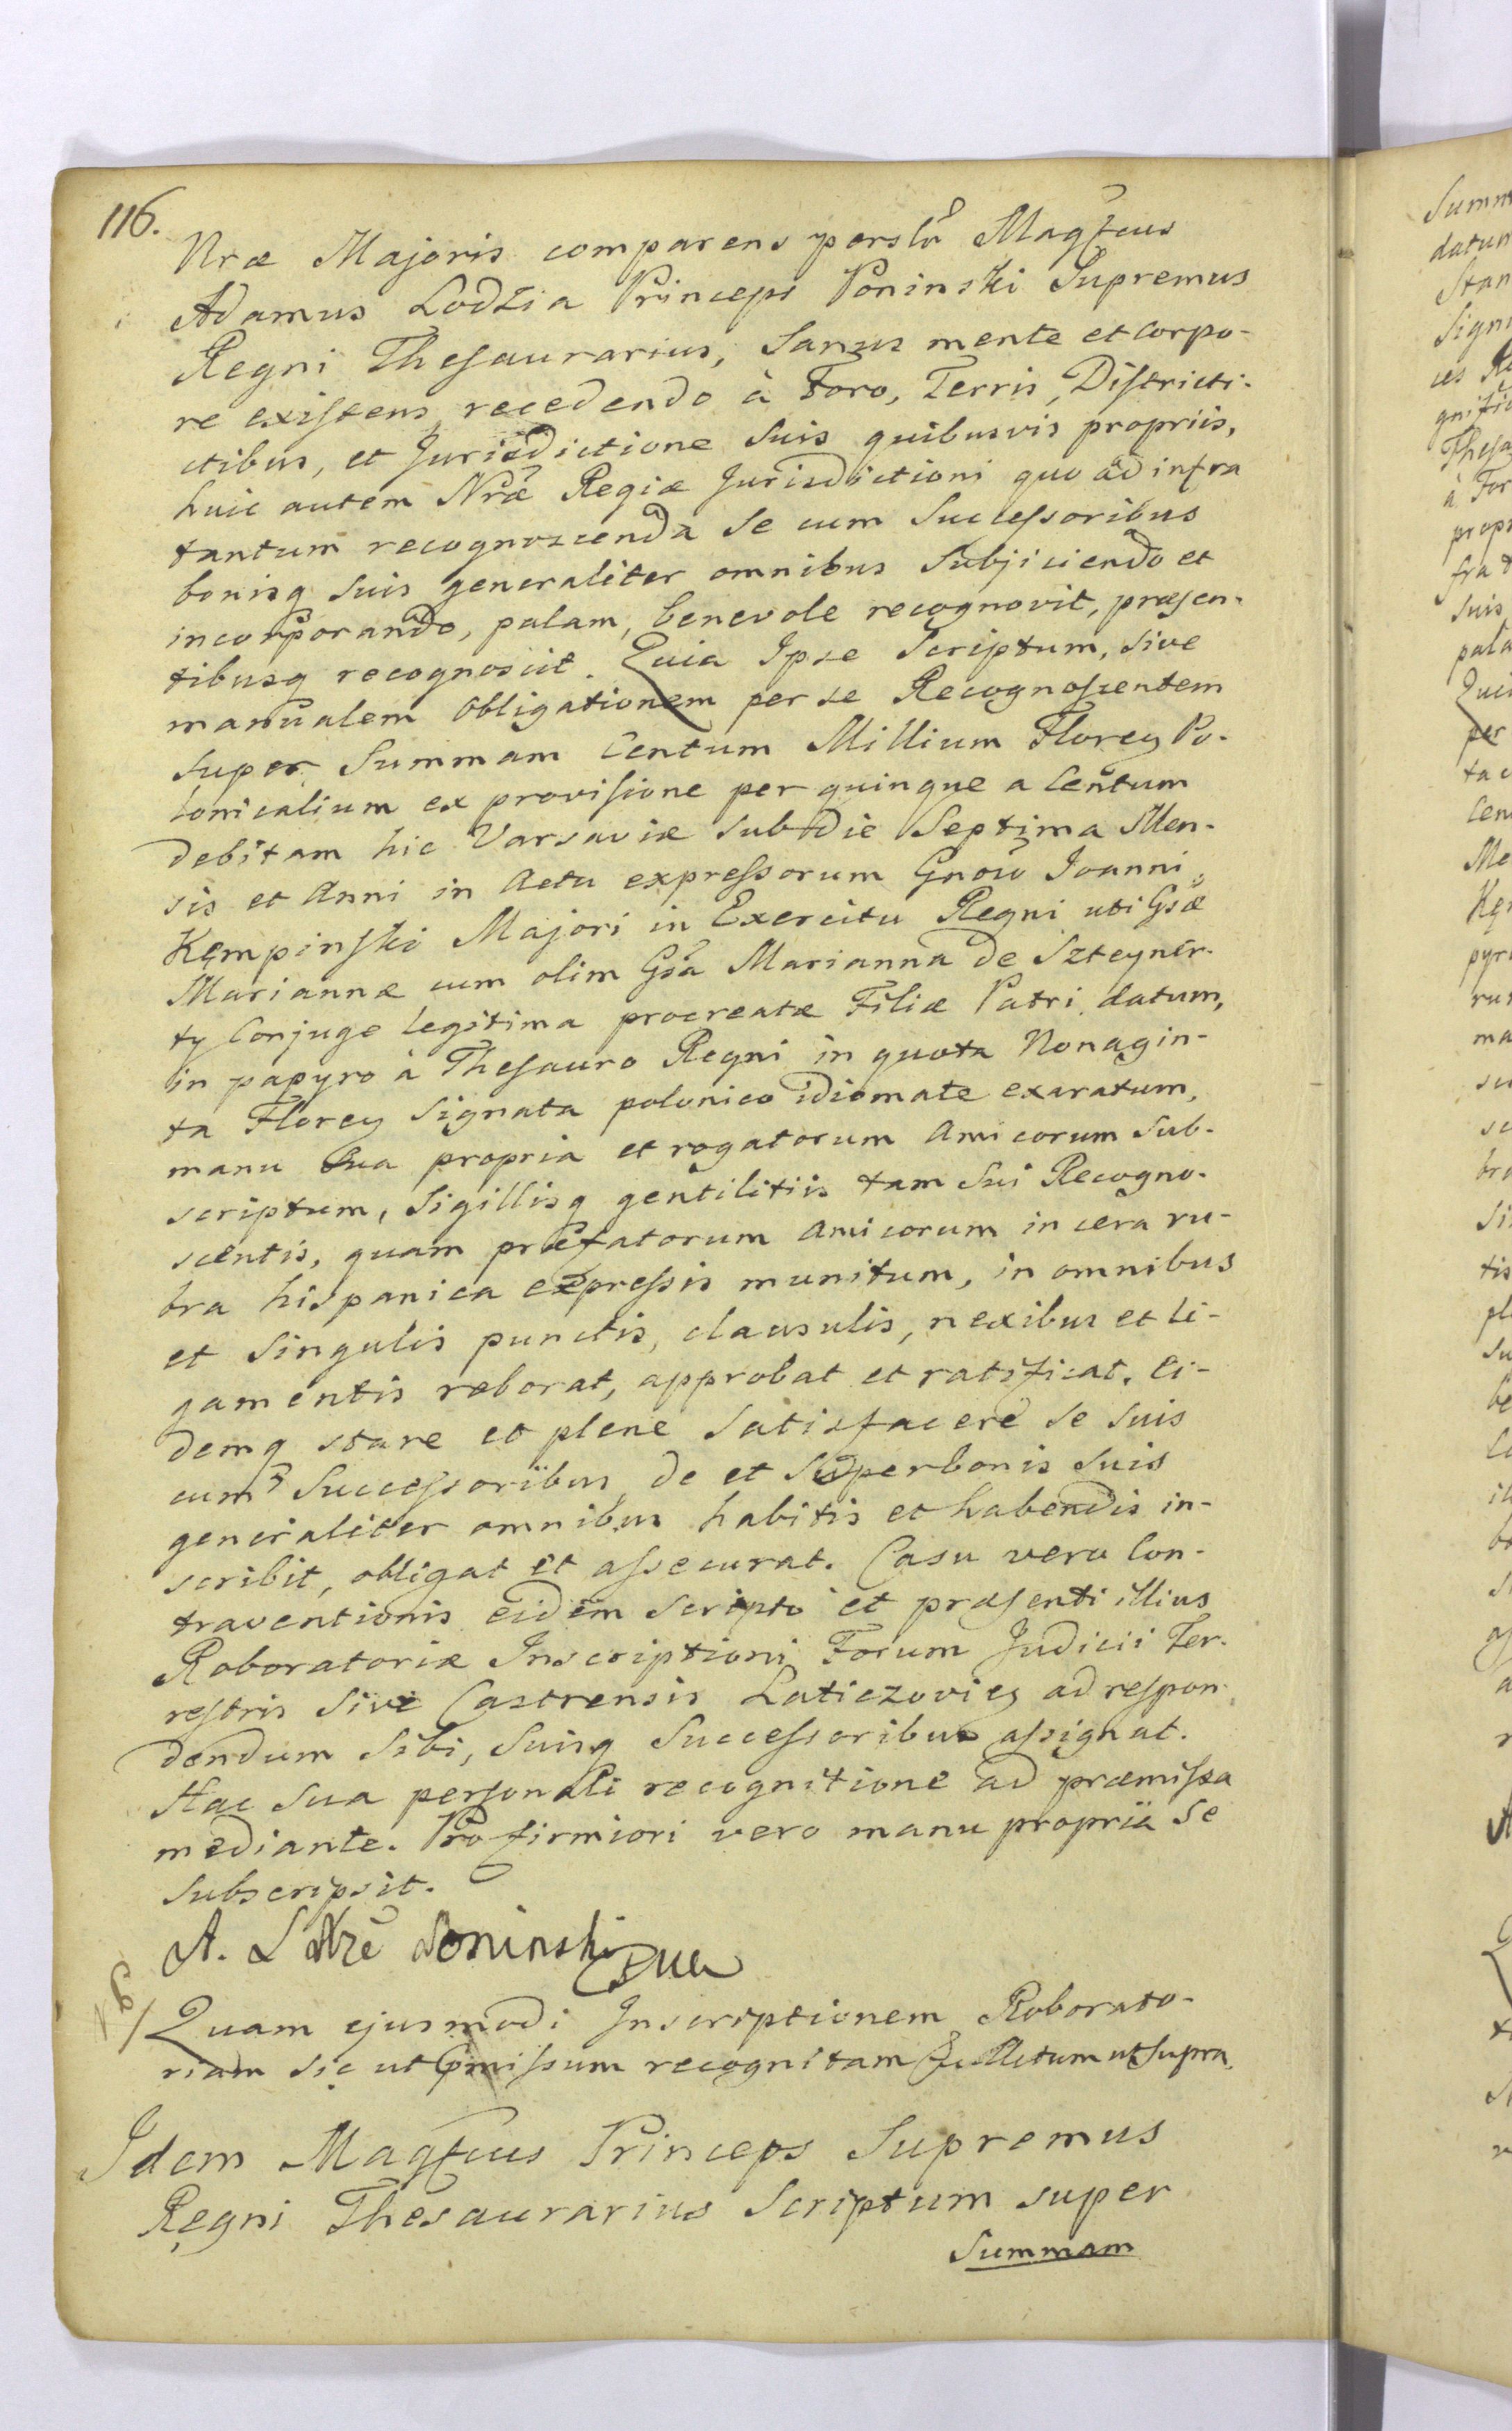 116.
Nræ Majoris comparens psrslr Magfcus
Adamus Lodzia Princeps Poninski Supremus
Regni Thesaurarius, Sanus mente et Corpo-
re existens, recedendo à Foro, Terris, Districti-
ctibus, et Jurisdictione Suis quibusvis propriis,
huic autem Nræ Regiæ Jurisdictioni quo ad infra
tantum recognoscenda Se cum Successoribus
bonisq Suis generaliter omnibus Subjiciendo et
incorporando, palam, benevole recognovit, præsen-
tibusq recognoscit. Quia Ipse Scriptum, Sive
manualem Obligationem per se Recognoscentem
Super Summam Centum Millium Floreg Po-
lonicalium ex provisione per quinque a Centum
debitam hic Varsaviæ Sub die Septima Men-
sis et Anni in Actu expressorum Gnoso Joanni
Kempinski Majori in Exercitu Regni uti Gsæ
Mariannæ cum olim Gsa Marianna de Szteyner-
ty Conjuge legitima procreatæ Filiæ Patri datum,
in papyro à Thesauro Regni in quota Nonagin-
ta Floreg Signata polonico idiomate exaratum,
manu Sua propria et rogatorum Amicorum Sub-
scriptum, Sigillisq gentilitiis tam Sui Recogno-
scentis, quam præfatorum Amicorum in cera ru-
bra hispanica expressis munitum, in omnibus
et Singulis punctis, clausulis, nexibus et li-
gamentis roborat, approbat et ratificat. Ei-
demq stare et plene Satisfacere Se Suis
cum Successoribus, de et Super bonis Suis
generaliter omnibus habitis et habendis in-
scribit, obligat et assecurat. Casu vero Con-
traventionis eidem Scripto et præsenti illius
Roboratoriæ Inscriptioni Forum Judicii Ter-
restris Sive Castrensis Laticzovieg ad respon-
dendum Sibi, Suisq Successoribus assignat.
Hac Sua personali recognitione ad præmissa
mediante. Pro firmiori vero manu propria Se
Subscripsit.
A. L Poninski
Quam ejusmodi Inscriptionem Roborato-
riam Sic ut pmissum recognitam Actum ut Supra.
Idem Magfcus Princeps Supremus
Regni Thesaurarius Scriptum Super
Summam